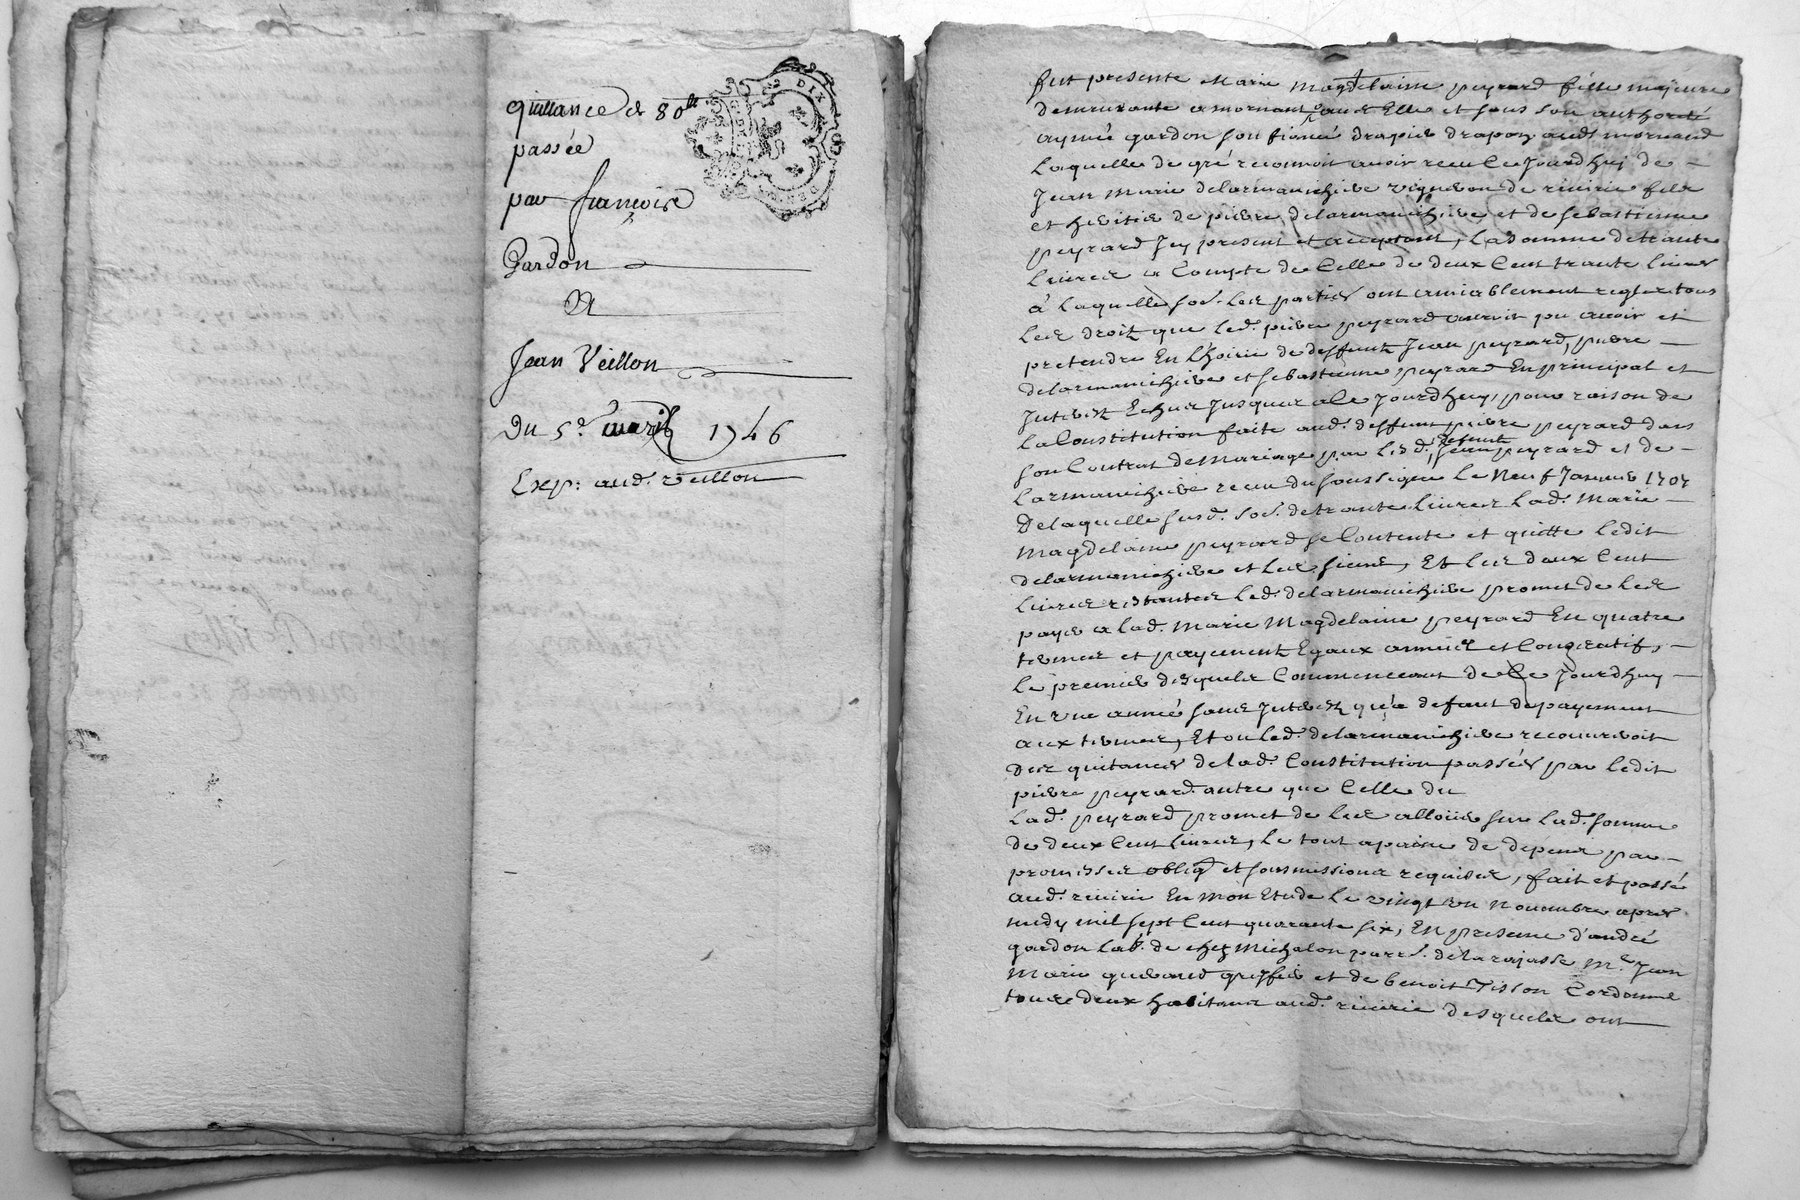 quittance de 80ᵗᵗ
DIX
passée
par françois
Gardon
A
Jean Veillon
Du 5ᵉ. avril 1746
Exp: aud. veillon
fut presente Marie Magdelaine peyrard fille majeure
demeurante a mornant elle et sous son authorité
aymé gardon son fiancé drapier drapan aud. mornand
Laquelle de gré reconnoit avoir receu ce Jourdhuy de
Jean Marie delarmanichiere vigneron de riviriè fils
et heritier de pierre delarmanichiere et de sebastienne
peyrard Jcy present et acceptant, la somme de trante
livres a Compte de Celle de deux Cent trante livres
à laquelle so.e les parties ont amiablement regler tous
les droit que led. pierre peyrard auroit pu avoir et
pretendre En l'hoirie de deffunt Jean peyrard, pierre
delarmanichiere et sebastienne peyrard En principal et
Jnterest Echus Jusques a Ce Jourdhuy, pour raison de
la Constitution faite aud. deffunt pierre peyrard dans
son Contrat de Mariage par lesd. deffunts Jean peyrard et de
larmanichiere receu du soussigné le Neuf Janvier 1707
De laquelle susd. so.e de trante livres lad. Marie
Magdelaine peyrard se Contente et quitte ledit
delarmanichiere et les siens, Et les deux Cent
livres restantes led. delarmanichiere promet de les
payer a lad. Marie Magdelaine peyrard En quatre
termes et payement Egaux année et Congeatif,
le premier desquels Commencent de Ce Jourdhuy
En une année sans Jnterest qu'a defaut de payement
aux termes, Et ou led. delarmanichiere recouvreroit
des quitances de lad. Constitution passées par ledit
pierre peyrard autre que Celle du
Lad. peyrard promet de les alloüer sur lad. somme
de deux Cent livres, le tout a paine de depens par
promesses oblig.^ et sousmissions requises, fait et passé
aud. riviriè En mon Etude le vingt un Novembre apres
midy mil sept Cent quarante six, En presence d'andré
gardon lab.r de chez Michalon parr.e de larajasse M.e Jean
Marie greffier et de benoit Tisson Cordonnier
tous deux habitans aud. riviriè desquels ont